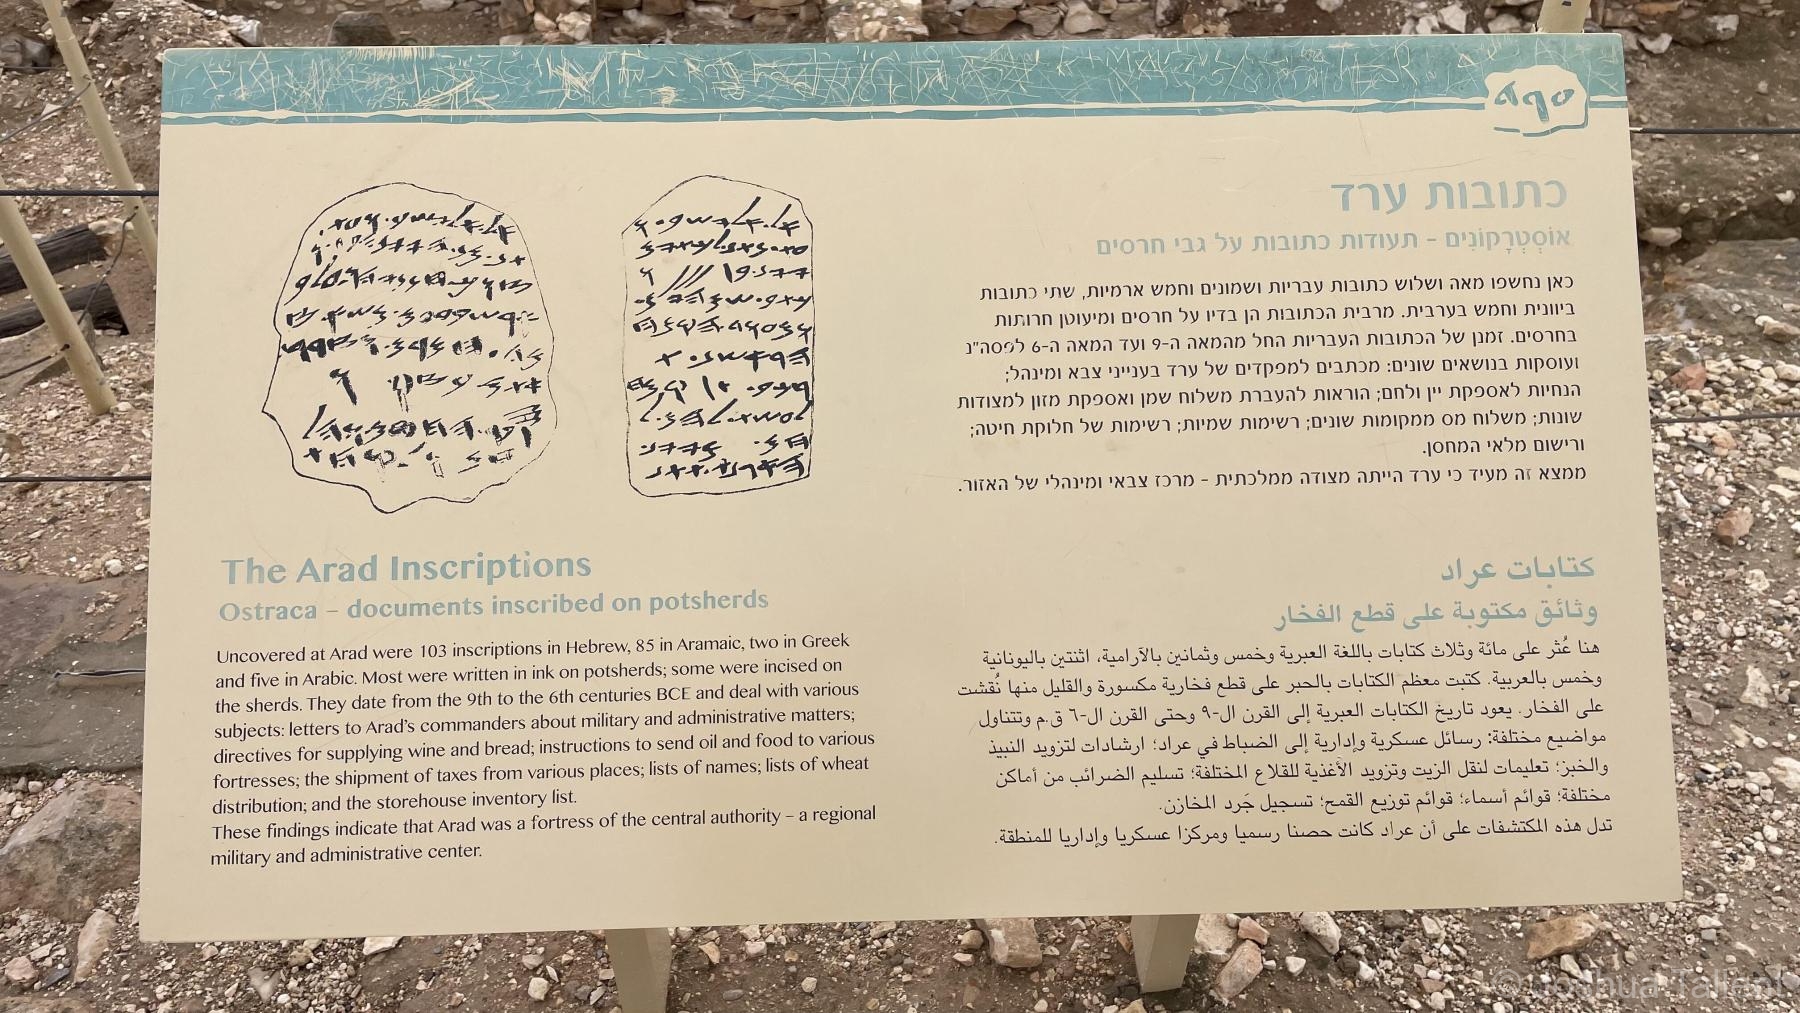 כתובות ערד
אוֹסְטְרָקוֹנִים - תעודות כתובות על גבי חרסים
כאן נחשפו מאה ושלוש כתובות עבריות ושמונים וחמש ארמיות, שתי כתובות
ביוונית וחמש בערבית. מרבית הכתובות הן בדיו על חרסים ומיעוטן חרותות
בחרסים. זמנן של הכתובות העבריות החל מהמאה ה-9 ועד המאה ה-6 לפסה"נ
ועוסקות בנושאים שונים: מכתבים למפקדים של ערד בענייני צבא ומינהל;
הנחיות לאספקת יין ולחם; הוראות להעברת משלוח שמן ואספקת מזון למצודות
שונות; משלוח מס ממקומות שונים; רשימות שמיות; רשימות של חלוקת חיטה;
ורישום מלאי המחסן.
ממצא זה מעיד כי ערד הייתה מצודה ממלכתית - מרכז צבאי ומינהלי של האזור.
The Arad Inscriptions
Ostraca – documents inscribed on potsherds
Uncovered at Arad were 103 inscriptions in Hebrew, 85 in Aramaic, two in Greek
and five in Arabic. Most were written in ink on potsherds; some were incised on
the sherds. They date from the 9th to the 6th centuries BCE and deal with various
subjects: letters to Arad's commanders about military and administrative matters;
directives for supplying wine and bread; instructions to send oil and food to various
fortresses; the shipment of taxes from various places; lists of names; lists of wheat
distribution; and the storehouse inventory list.
These findings indicate that Arad was a fortress of the central authority – a regional
military and administrative center.
كتابات عراد
وثائق مكتوبة على قطع الفخار
هنا عُثر على مائة وثلاث كتابات باللغة العبرية وخمس وثمانين بالآرامية، اثنتين باليونانية
وخمس بالعربية. كتبت معظم الكتابات بالحبر على قطع فخارية مكسورة والقليل منها نُقشت
على الفخار. يعود تاريخ الكتابات العبرية إلى القرن ال-٩ وحتى القرن ال-٦ ق.م وتتناول
مواضيع مختلفة: رسائل عسكرية وإدارية إلى الضباط في عراد؛ ارشادات لتزويد النبيذ
والخبز؛ تعليمات لنقل الزيت وتزويد الأغذية للقلاع المختلفة؛ تسليم الضرائب من أماكن
مختلفة؛ قوائم أسماء؛ قوائم توزيع القمح؛ تسجيل جَرد المخازن.
تدل هذه المكتشفات على أن عراد كانت حصنا رسميا ومركزا عسكريا وإداريا للمنطقة.